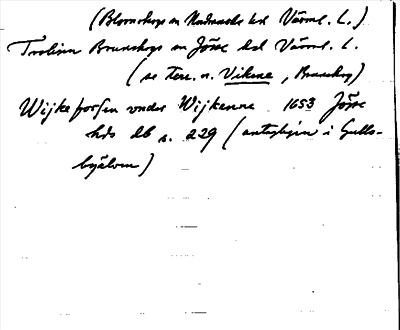 (Blomskogs sn Nordmarks hd Värml. L.)
Trolien Brunskogs sn Jösse hd Värml. L.
(se Terr. n. Vikene, Brunskog)
Wijkeforsen vnder Wijkenne 1653 Jösse
hds db s. 229 (antagligen i Gulls-
byälven)